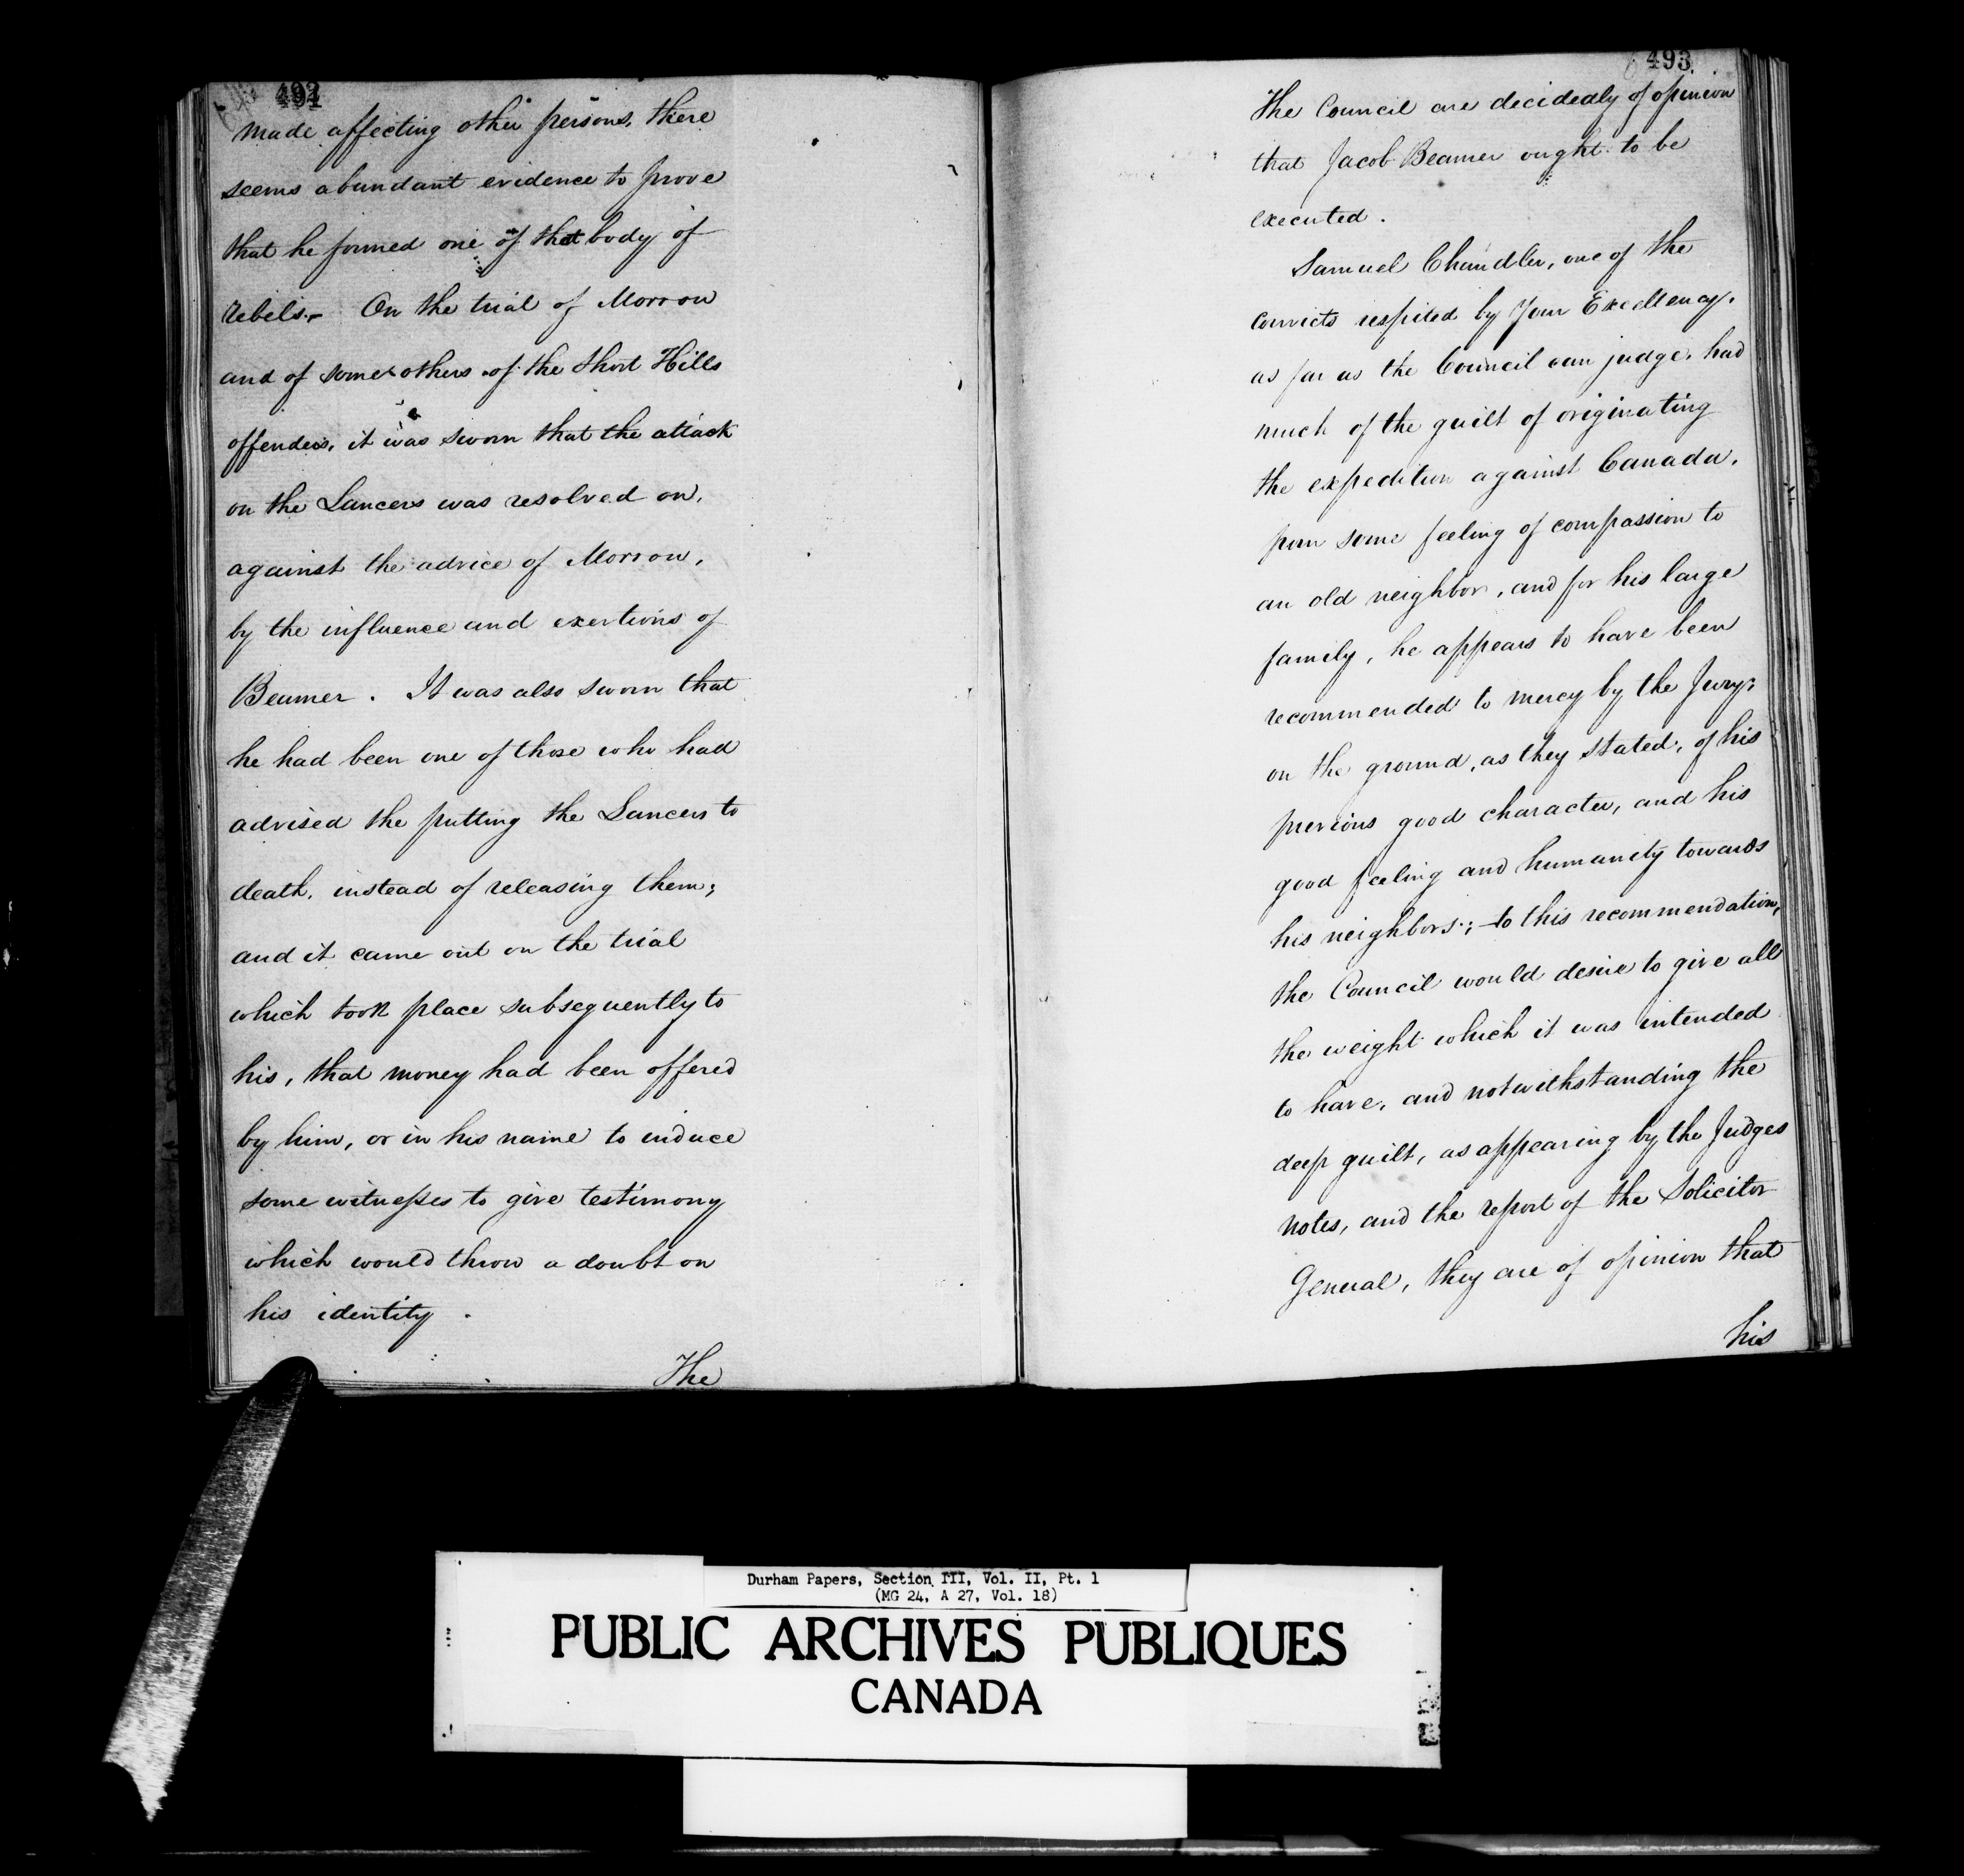 492
made affecting other persons, there
seems abundant evidence to prove
that he formed one of that body of
rebels. On the trial of Morrow
and of some others of the Short Hills
offenders, it was sworn that the attack
on the Lancers was resolved on,
against the advice of Morrow,
by the influence and exertions of
Beamer. It was also sworn that
he had been one of those who had
advised the putting the Lancers to
death, instead of releasing them;
and it came out on the trial
which took place subsequently to
his, that money had been offered
by him, or in his name to induce
some witnesses to give testimony
which would throw a doubt on
his identity.
The
493
The Council are decidedly of opinion
that Jacob Beamer ought to be
executed.
Samuel Chandler, one of the
convicts respited by Your Excellency,
as far as the Council can judge, had
much of the guilt of originating
the expedition against Canada,
from some feeling of compassion to
an old neighbor, and for his large
family, he appears to have been
recommended to mercy by the Jury,
on the ground, as they stated, of his
previous good character, and his
good feeling and humanity towards
his neighbors; to this recommendation,
the Council would desire to give all
the weight which it was intended
to have, and notwithstanding the
deep guilt, as appearing by the Judges
notes, and the report of the Solicitor
General, they are of opinion that
his
Durham Papers, Section III, Vol. II, Pt. 1
(MG 24, A 27, Vol. 18)
PUBLIC ARCHIVES PUBLIQUES
CANADA